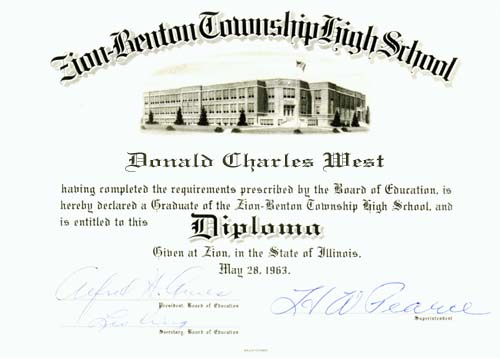 Zion-Benton Township High School
Donald Charles West
having completed the requirements prescribed by the Board of Education, is
hereby declared a Graduate of the Zion-Benton Township High School, and
is entitled to this Diploma
Given at Zion, in the State of Illinois,
May 28, 1963.
Alfred H.
President, Board of Education
H W Pearce
Superintendent
Secretary, Board of Education